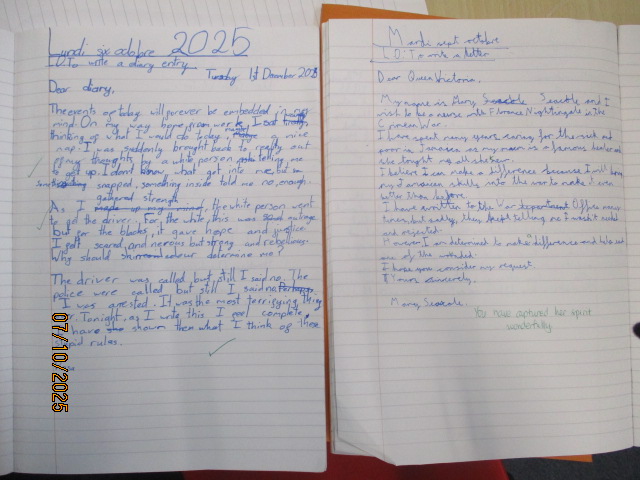 Lundi six octobre 2025
L.O. To write a diary entry
Tuesday 1st December
Dear diary,
The events of today will forever be embedded in my
mind. On my way home from work, I sat
thinking of what I would do today. a nice
nap. I was suddenly brought back to reality out
of my thoughts by a white person telling me
to get up. I don't know what got into me, but
something snapped, something inside told me no, enough.
gathered strength
As I the white person went
to get the driver. For the white, this was outrage
but for the blacks, it gave hope and justice.
I felt scared and nervous but strong and rebellious.
Why should colour determine me?
The driver was called but still I said no. The
police were called but still I said no.
I was arrested. It was the most terrifying thing
Tonight, as I write this, I feel complete.
have shown them what I think of these
rules.
Mardi sept octobre
L.O: To write a letter
Dear Queen Victoria,
My name is Mary Seacole and I
wish to be a nurse with Florence Nightingale in the
Crimean War.
I have spent many years caring for the sick and
poor in Jamaica as my mom is a famous healer and
she taught me all she knew.
I believe I can make a difference because I will bring
my Jamaican skills into the war to make it even
better than before.
I have written to the War Office many
times, but sadly, they kept telling me I wasn't needed
and rejected.
However I am determined to make a difference and take care
one of the wounded.
I hope you consider my request
Yours sincerely,
Mary Seacole.
You have captured her spirit
wonderfully.
07/10/2025